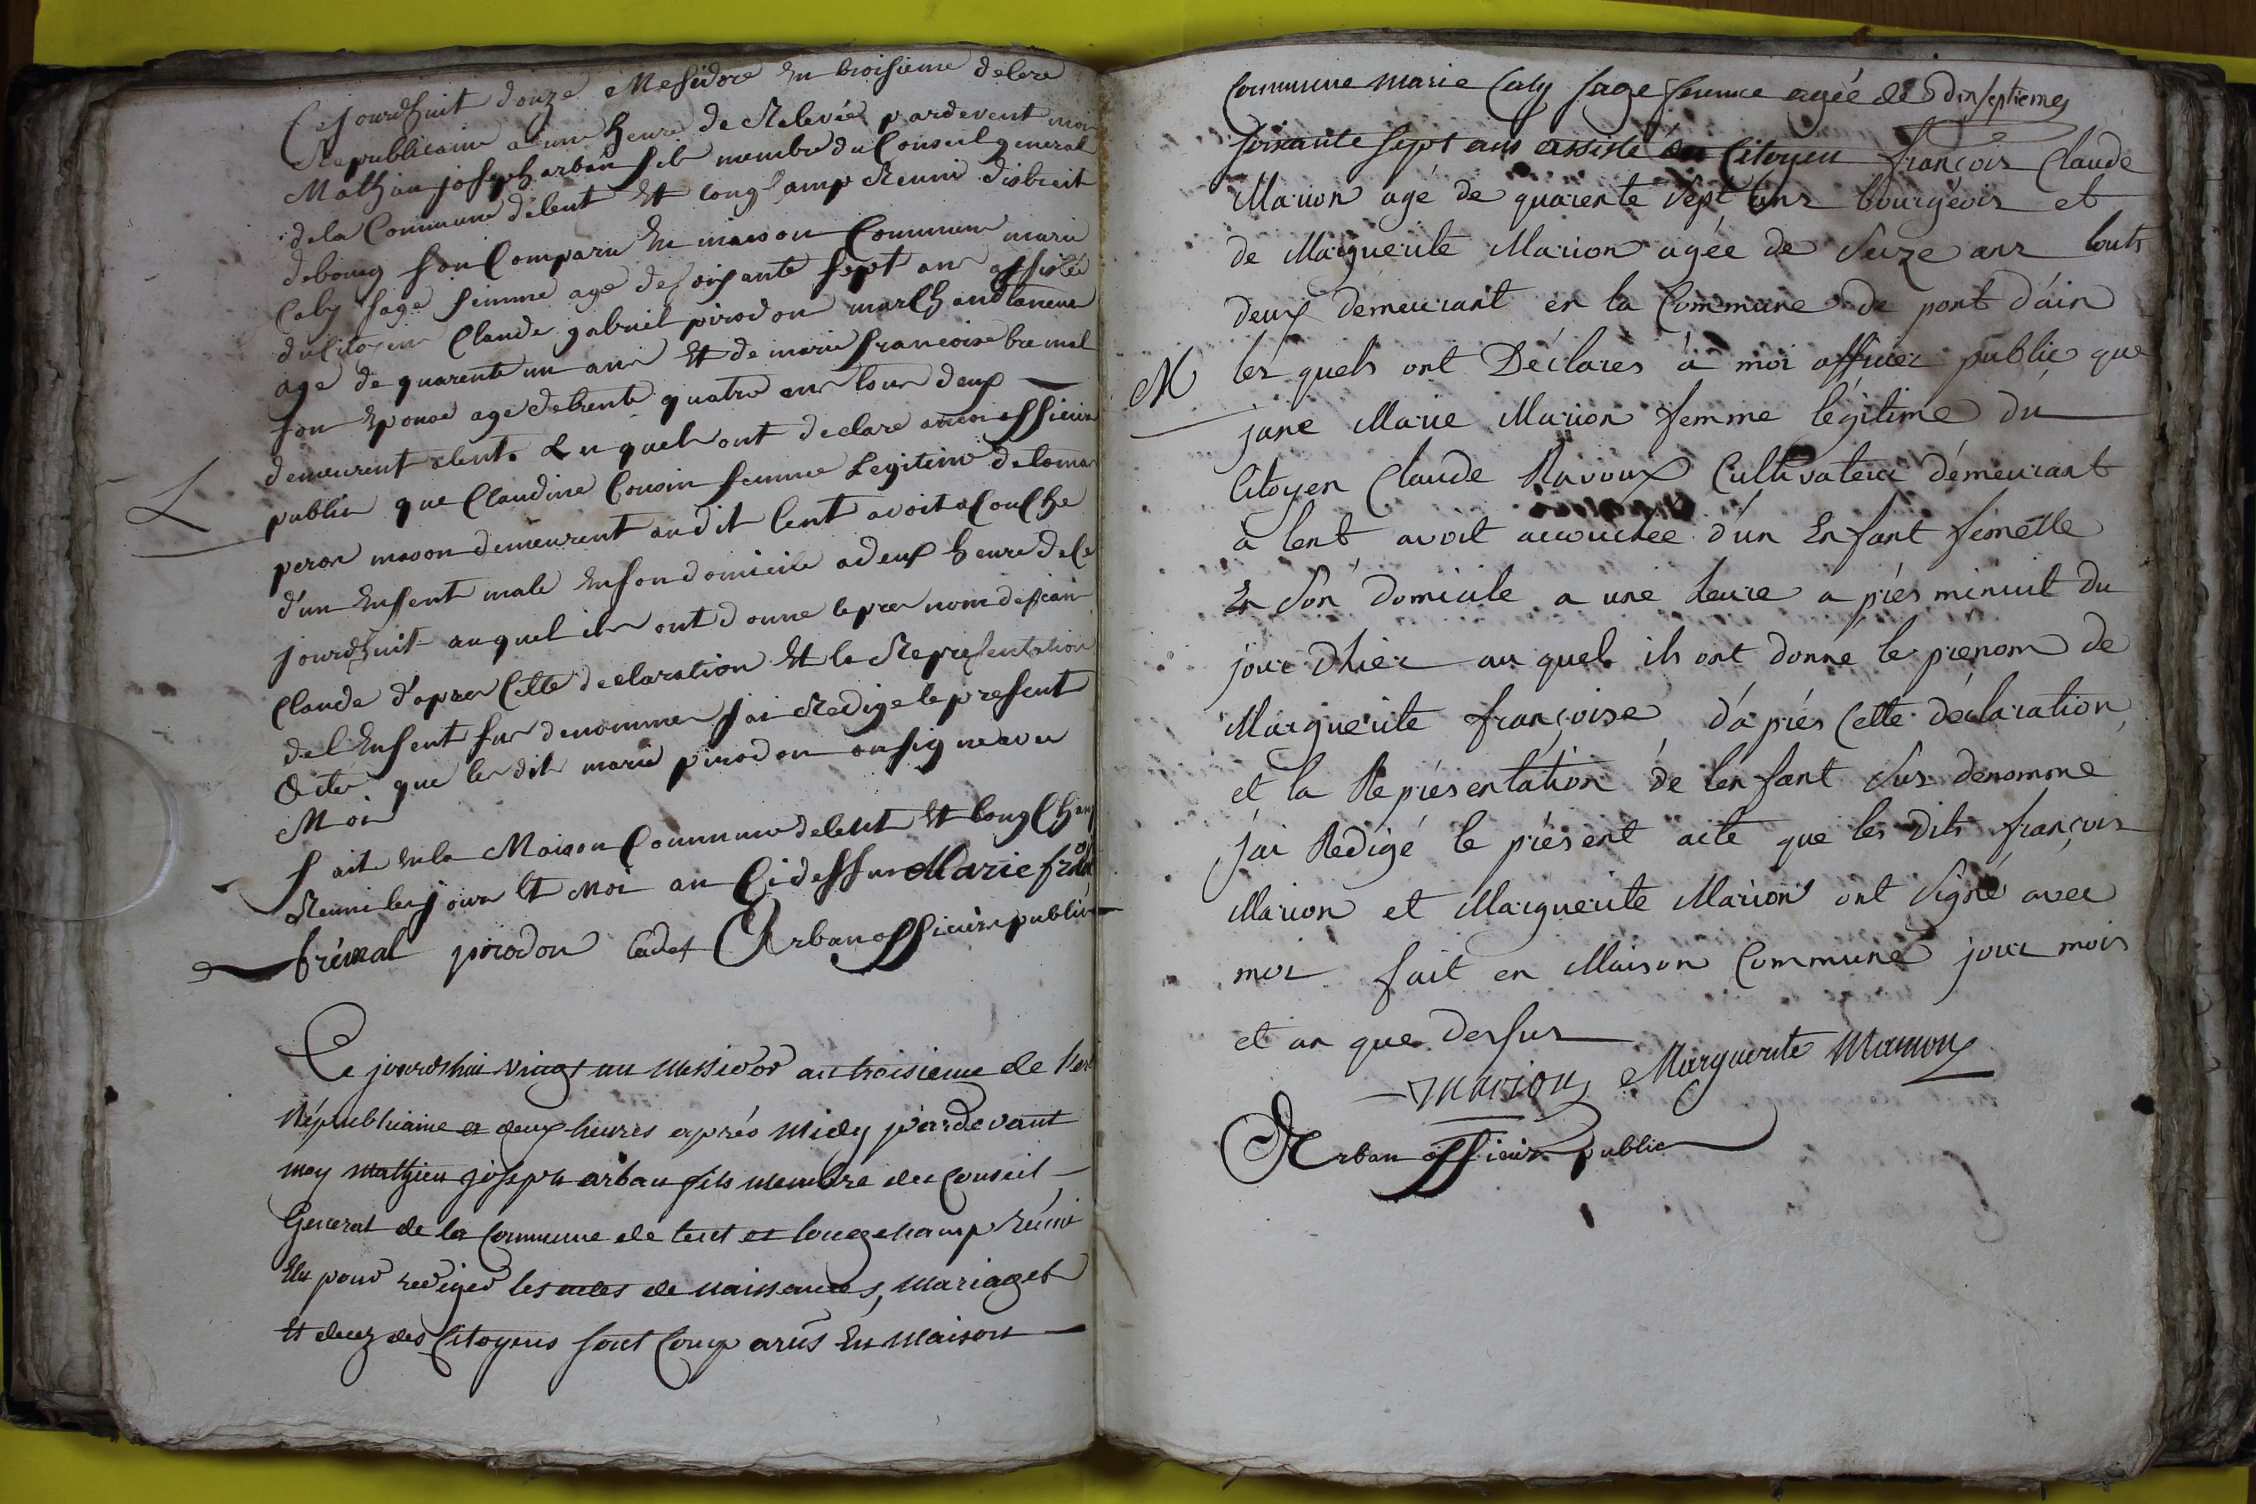 Cejourdhuit douze Mesidore En troisieme delere
Republicaine a une heure de Relevée pardevent moi
Mathieu joseph arban fils membre du Conseil general
dela Commune delent Et longchamp Reuni district
debourg son Comparu En maison Commune marie
Caly sage femme age de soisante sept ans assistée
du Citoyen Claude gabriel pirodon marchand taneur
age de quarente un ans Et de marie francoise bremal
son Epouse age detrente quatre ans tous deux
demeurent alent. Lesquels ont declare amoi officier
L
public que Claudine Cousin femme Legitime de tomas
peron mason demeurent audit lent avoit acouche
d'un Enfent male En son domicile a deux heure de Ce
jourdhuit auquel ils ont donne le pre nom de jean
Claude d'apres Cette declaration Et la Representation
del Enfent sus denommes j'ai Redige le present
acte que lesdits marie pirodon on signe avec
Moi
fait En la Maison Commune delent Et longchamp
Reuni les jour Et Moi an Cidessus Marie fran
brémal pirodon Cadet Arban officier public
Ce jourdhui vingt un Messidor an troisieme de l'ere
Républicaine a deux heures après Midy pardevant
moy mathieu joseph arban fils membre du Conseil
General de la Commune de lent et longchamp réuni
Elu pour rediger les actes de naissances, mariages
Et decez des Citoyens sont Comparûs En Maison
Commune Marie Caly sage femme agée de dixseptiemes
soixante sept ans assisté du Citoyen françois Claude
Marion agé de quarente sept ans bourgeois et
de Marguerite Marion agée de seize ans touts
deux demeurant en la Commune de pont d'ain
M
les quels ont Déclarés à moi officier public que
jane Marie Marion femme légitime du
Citoyen Claude Ravoux Cultivateur démeurant
à lent avoit accouchée d'un Enfant femelle
En son domicile a une heure a près minuit du
jour dhier au quel ils ont donné le prenom de
Marguerite françoise d'a près Cette déclaration
et la Représentation de lenfant sus denommé
j'ai Redigé le présent acte que les dits françois
Marion et Marguerite Marion ont signé avec
moi fait en Maison Commune jour mois
et an que dessus
Marion Marguerite Marion
Arban officier public